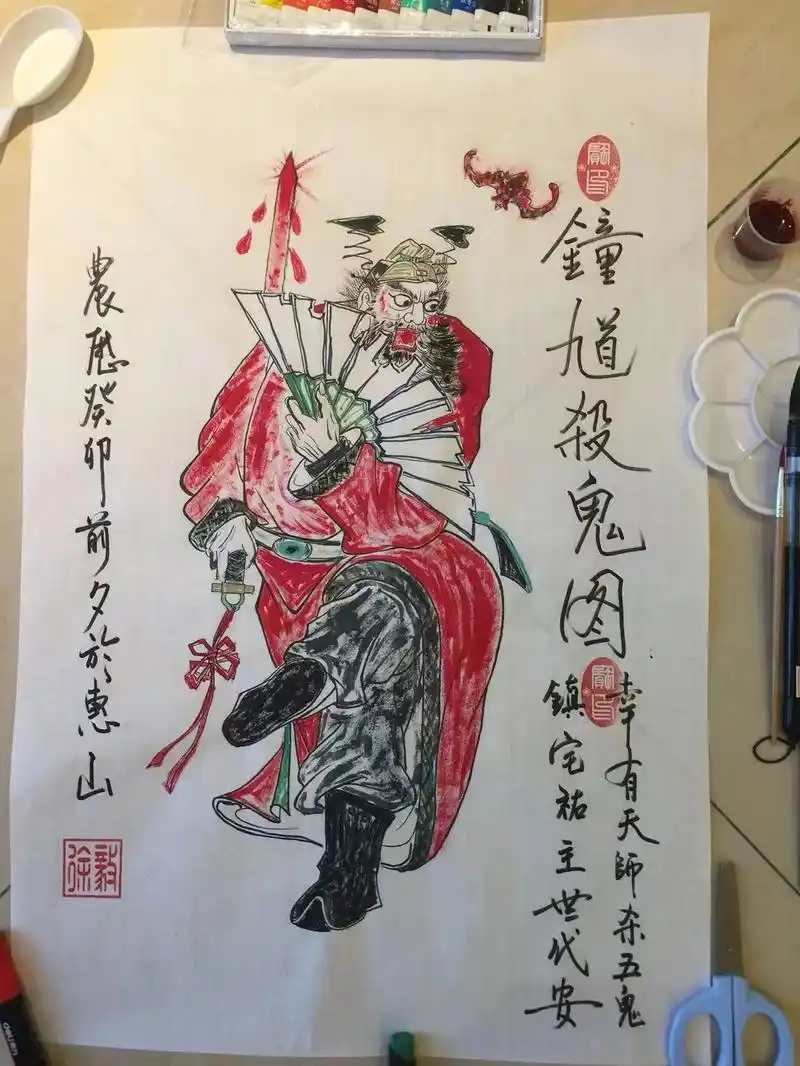 鐘馗殺鬼图
幸有天師杀五鬼
鎮宅祐主世代安
農歷癸卯前夕於惠山
徐毅
deli